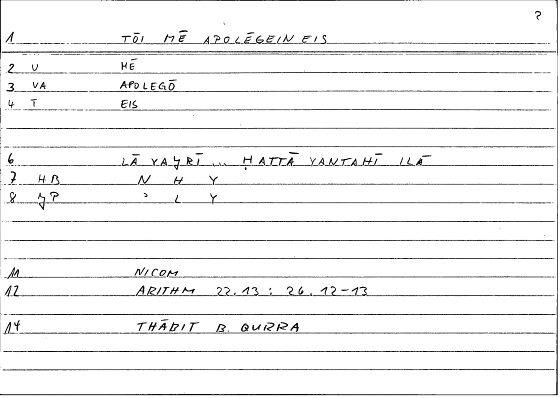 ?
1 TŌI MĒ APOLĒGEIN EIS
2 U MĒ
3 VA APOLEGŌ
4 T EIS
6 LĀ YAǦRĪ ... ḤATTĀ YANTAHĪ ILĀ
7 HB N H Y
8 ǦP ʾ L Y
11 NICOM
12 ARITHM 22.13 : 26.12-13
14 THĀBIT B. QURRA